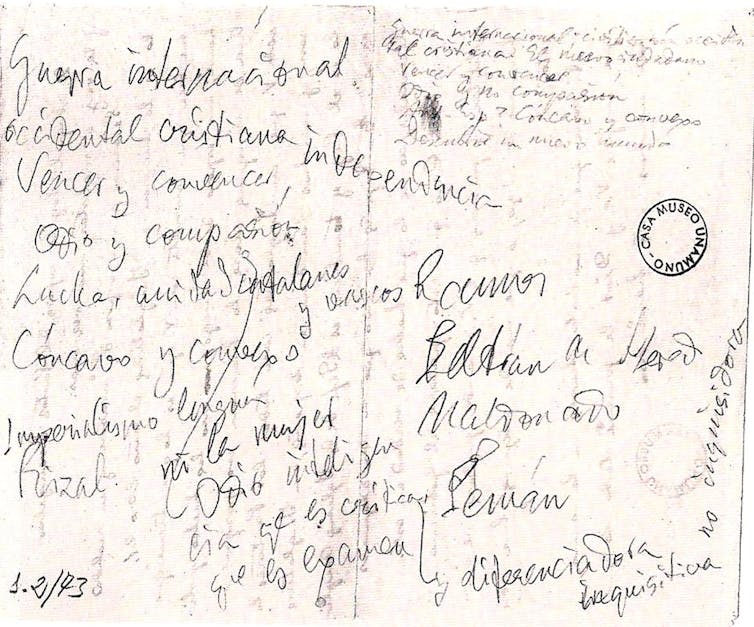 Guerra internacional
occidental cristiana independencia
Vencer y convencer
Odio y compasión
Lucha, unidad catalanes
y vascos
Cóncavo y convexo
Imperialismo lengua
Rizal. ni la mujer
Odio inteligen
cia que es crítica
que es examen
y diferenciadora
inquisitiva
no inquisidora
1.2/43
Guerra internacional civilización occiden
tal cristiana El
Vencer y convencer
Odio y no compasión
Cóncavo y convexo
Descubrir un nuevo mundo
CASA MUSEO UNAMUNO
Ramos
Beltrán de
Maldonado
Pemán